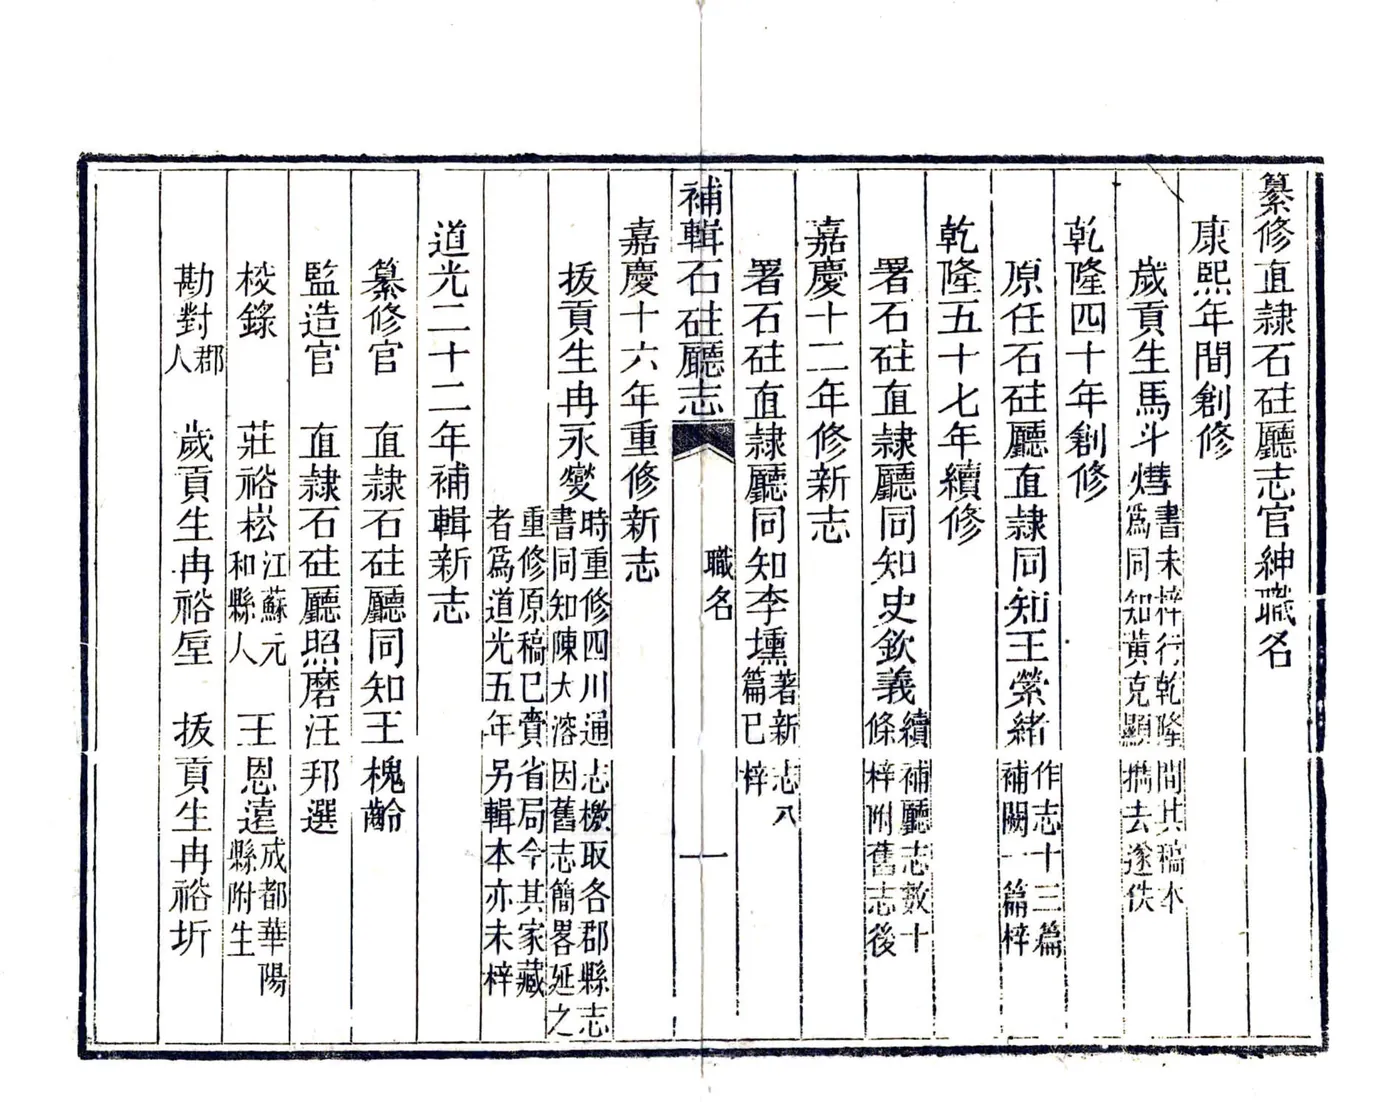 纂修直隷石砫廳志官紳職名
康熙年間創修
歲貢生馬斗㷒
書未梓行乾隆間其稿本
爲同知黃克顯攜去遂佚
乾隆四十年創修
原任石砫廳直隷同知王縈緒
作志十三篇
補闕一篇梓
乾隆五十七年續修
署石砫直隷廳同知史欽義
續補廳志數十
條梓附舊志後
嘉慶十二年修新志
署石砫直隷廳同知李壎
著新志八
篇已梓
補輯石砫廳志
職名
一
嘉慶十六年重修新志
拔貢生冉永燮
時重修四川通志檄取各郡縣志
書同知陳大溶因舊志簡畧延之
重修原稿已賷省局今其家藏
者爲道光五年另輯本亦未梓
道光二十二年補輯新志
纂修官 直隷石砫廳同知王槐齡
監造官 直隷石砫廳照磨汪邦選
校錄 莊裕崧
江蘇元
和縣人
王恩遠
成都華陽
縣附生
勘對
郡
人
歲貢生冉裕垕 拔貢生冉裕圻